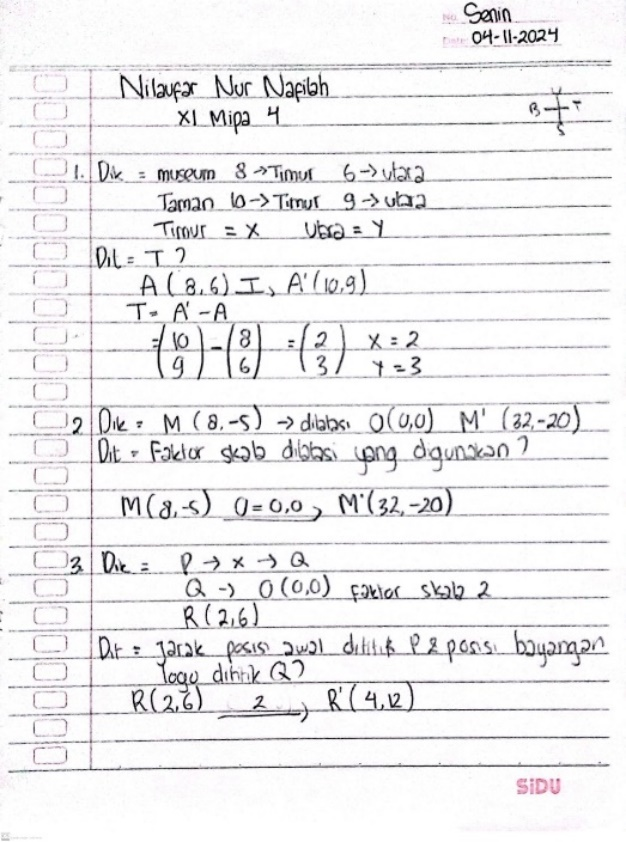 No. Senin
Date: 04-11-2024
Nilaufar Nur Nafilah
XI Mipa 4
B T
S
1. Dik = museum 8 → Timur 6 → utara
Taman 10 → Timur 9 → utara
Timur = x Utara = Y
Dit = T ?
A (8,6) T→ A' (10,9)
T = A' - A
= (10 9) - (8 6) = (2 3) x = 2 Y = 3
2 Dik = M (8,-5) → dilatasi O(0,0) M' (32,-20)
Dit = Faktor skala dilatasi yang digunakan ?
M(8,-5) O=0,0→ M'(32,-20)
3 Dik = P → x → Q
Q → O(0,0) Faktor skala 2
R (2,6)
Dit = Jarak posisi awal dititik P & posisi bayangan
logo dititik Q ?
R(2,6) 2→ R' (4,12)
SiDU